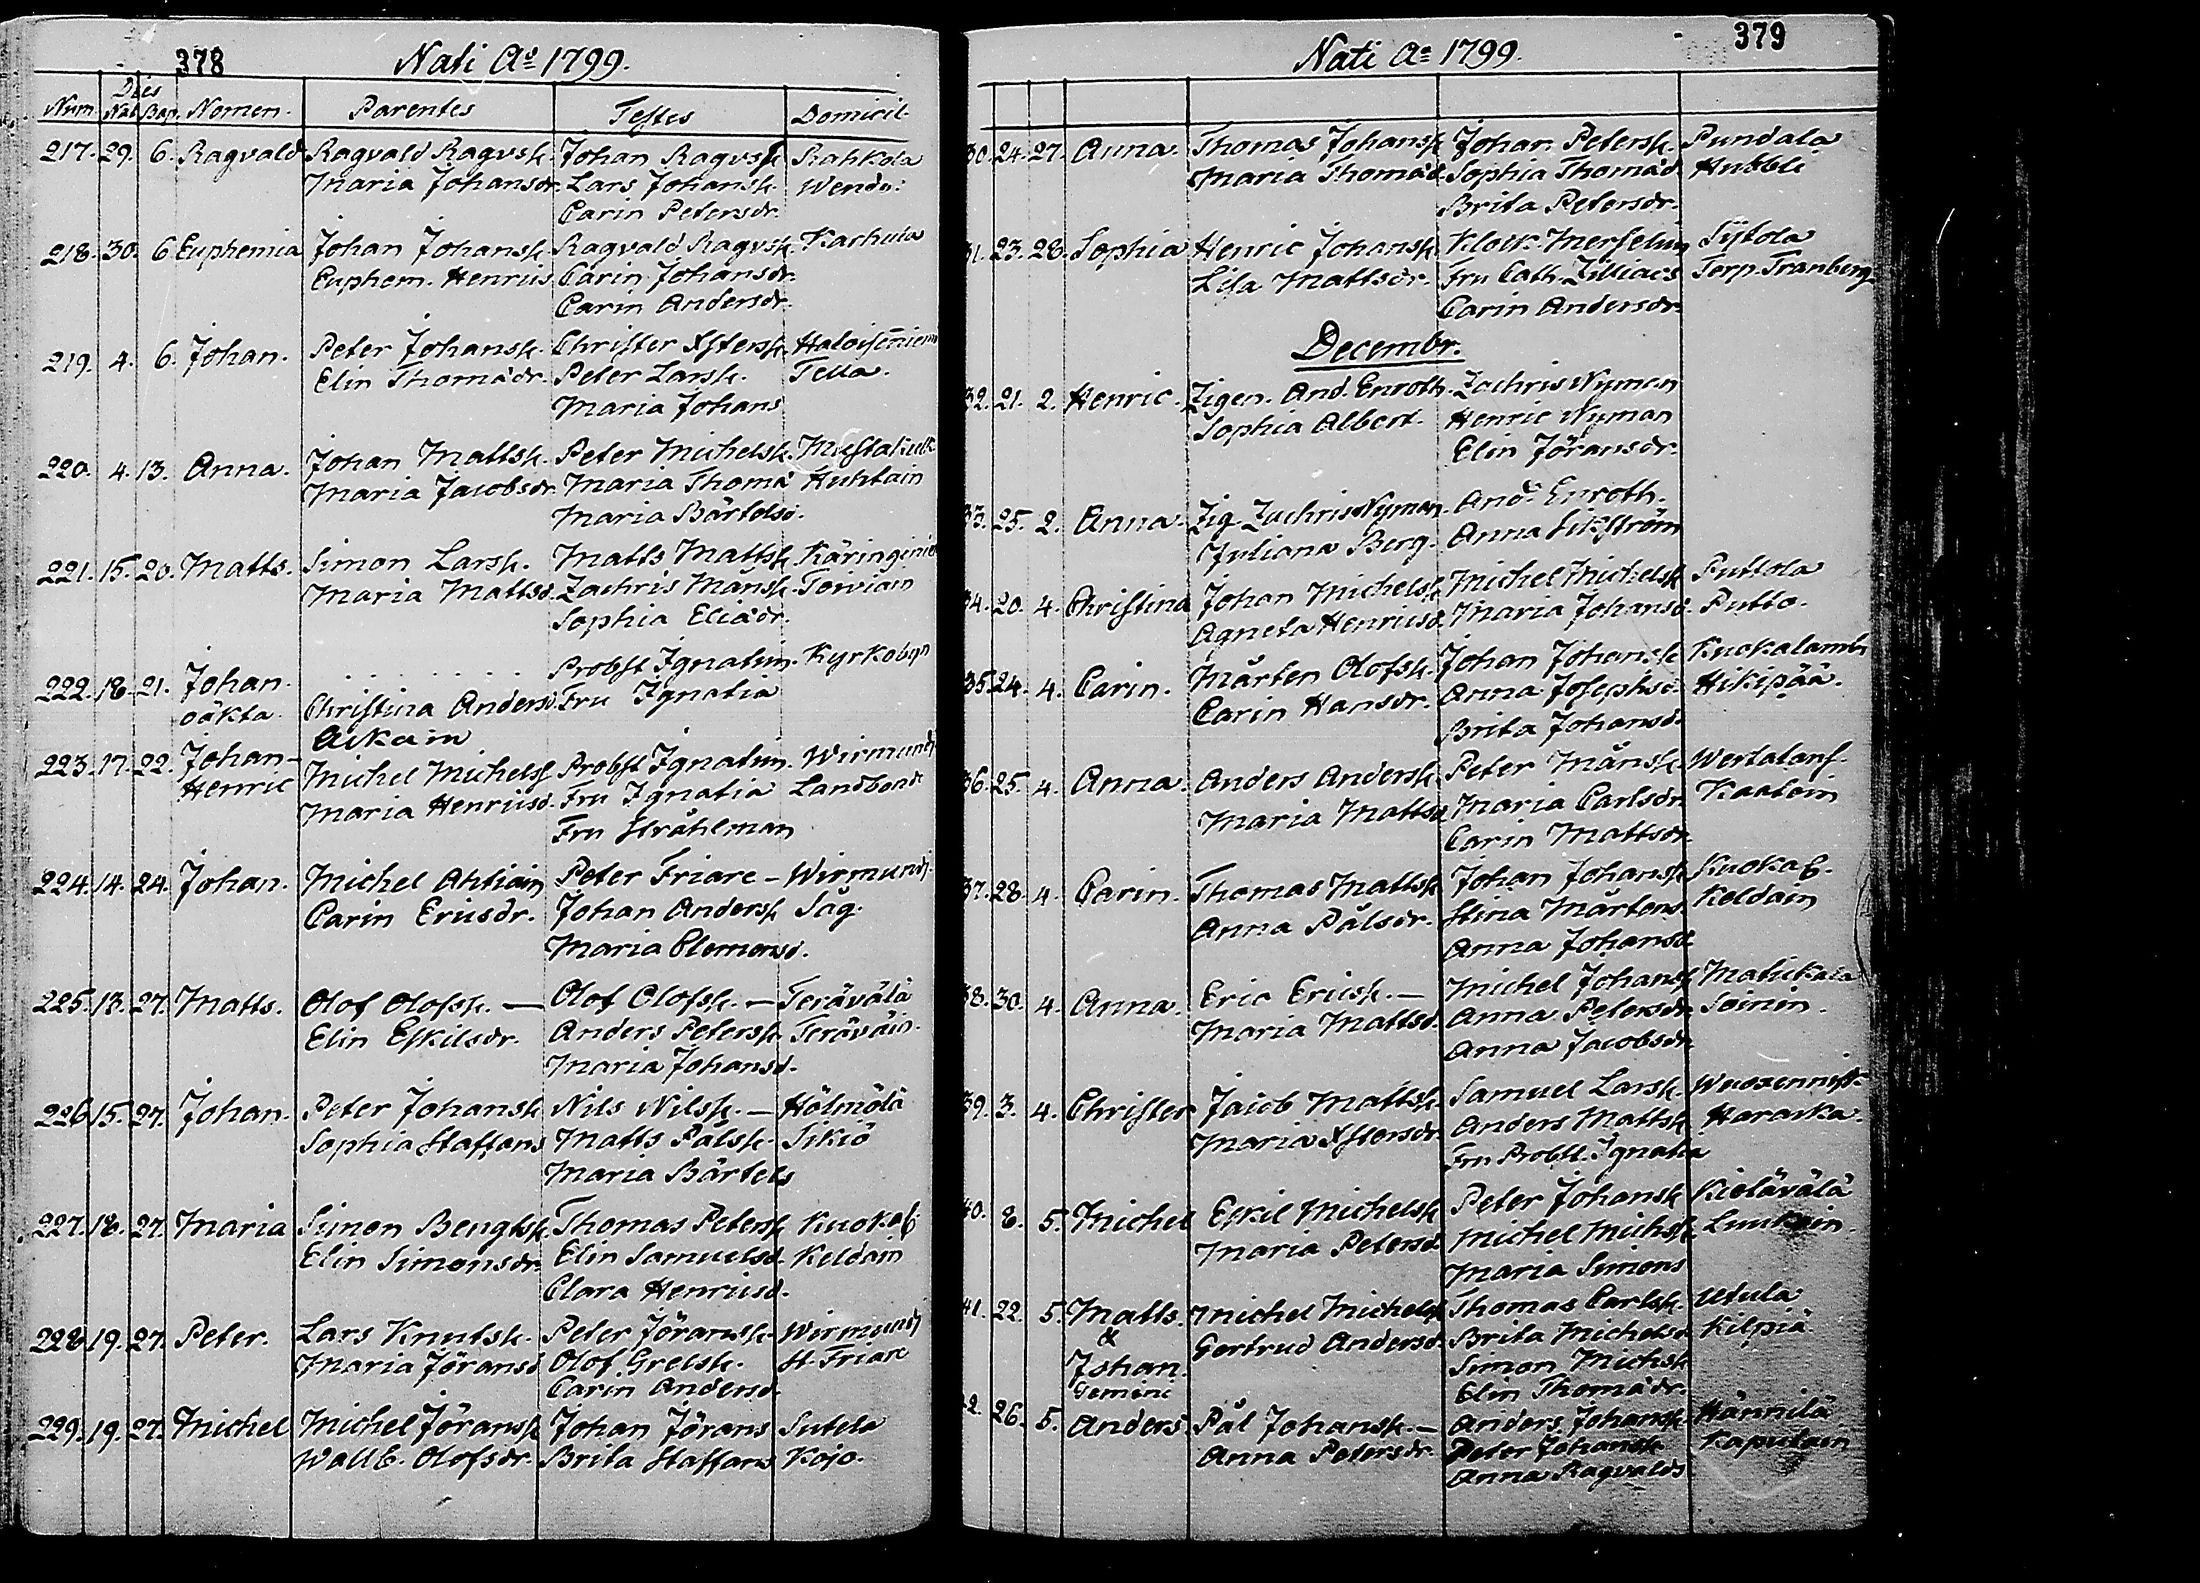 378
Nati Aº 1799.
Num. Dies Nat. Bap. Nomen. Parentes Testes Domicil.
217. 29. 6. Ragvald Ragvald Ragvsk. Johan Ragvsk. Rahkola
Maria Johansdr. Lars Johansk. Wendo:
Carin Petersdr.
218. 30. 6 Euphemia Johan Johansk. Ragvald Ragvsk. Karhula
Euphem. Henrics Carin Johansdr.
Carin Andersdr.
219. 4. 6. Johan. Peter Johansk. Christer Xstersk.
Elin Thomädr. Peter Larsk. Tella.
Maria Johans
220. 4. 13. Anna. Johan Mattsk. Peter Michelsk.
Maria Jacobsdr. Maria Thomä Huhtain
Maria Bärtelsd.
221. 15. 20. Matts. Simon Larsk. Matts Mattsk.
Maria Mattsd. Zachris Månsk. Torviain
Sophia Eliädr.
222. 18. 21. Johan . . . . . . Probst Ignatius. Kyrkobyn
oäkta. Christina Andersd. Fru Ignatia
Aikain
223. 17. 22. Johan- Michel Michelsk Probst Ignatius. Wirmundj
Henric Maria Henricsd. Fru Ignatia Landbonde
Fru Stråhlman
224. 14. 24. Johan. Michel Ahtiain Peter Friare - Wirmundj.
Carin Ericsdr. Johan Andersk. Såg.
Maria Clemensd.
225. 13. 27. Matts. Olof Olofsk. — Olof Olofsk. — Terävälä
Elin Eskilsdr. Anders Petersk. Teräväin.
Maria Johansd.
226. 15. 27. Johan. Peter Johansk. Nils Nilsk. — Hölmölä
Sophia Staffans Matts Pålsk. Sikiö
Maria Bärtels
227. 18. 27. Maria Simon Bengtsk. Thomas Petersk. Kuokal
Elin Simonsdr. Elin Samuelsd. Keldain
Clara Henricsd.
228. 19. 27. Peter. Lars Knutsk. Peter Jöransk. Wirmundj
Maria Jöransd. Olof Grelsk. St. Friare
Carin Andersd.
229. 19. 27. Michel Michel Jöransk. Johan Jörans Sutela
Wallb. Olofsdr. Brita Staffans Kojo.
379
Nati Aº 1799.
30. 24. 27. Anna. Thomas Johansk. Johan Petersk. Pundala
Maria Thomäd. Sophia Thomäd. Hubbli
Brita Petersdr.
31. 23. 28. Sophia Henric Johansk. Klock. Sÿtola
Lisa Mattsdr. Fru Cath. Zilliacs Torp. Tranberg.
Carin Andersdr.
Decembr.
32. 21. 2. Henric. Zigen. And. Enroth. Zachris Nyman
Sophia Albert. Henric Nyman
Elin Jöransdr.
33. 25. 2. Anna. Zig. Zachris Nyman. And. Enroth.
Juliana Berg. Anna
34. 20. 4. Christina Johan Michelsk. Michel Michelsk. Puttola
Agneta Henricsd. Maria Johansd. Putto.
35. 24. 4. Carin. Mårten Olofsk. Johan Johansk. Kuokalambi
Carin Hansdr. Anna Josephsd. Hikipää.
Brita Johansd.
36. 25. 4. Anna. Anders Andersk. Peter Månsk.
Maria Mattsd. Maria Carlsdr. Kaatoin
Carin Mattsdr.
37. 28. 4. Carin. Thomas Mattsk. Johan Johansk. Kuokal.
Anna Pålsdr. Stina Mårtens. Keldain
Anna Johansd.
38. 30. 4. Anna. Eric Ericsk. — Michel Johansk. Matikala
Maria Mattsd. Anna Petersdr. Soinin.
Anna Jacobsdr.
39. 3. 4. Christer Jacob Mattsk. Samuel Larsk.
Maria Xstersdr. Anders Mattsk. Harakka.
Fru Probst. Ignatia
40. 8. 5. Michel Eskil Michelsk. Peter Johansk. Kietävälä
Maria Petersd. Michel Michsk. Luukain.
Maria Simons
41. 22. 5. Matts. Michel Michelsk. Thomas Carlsk. Utula
& Gertrud Andersd. Brita Michelsd. Kilpiä
Johan. Simon Michsk.
Gemeni Elin Thomädr.
42. 26. 5. Anders. Pål Johansk. — Anders Johansk. Hännilä
Anna Petersdr. Peter Johansk. Kapulain
Anna Ragvalds